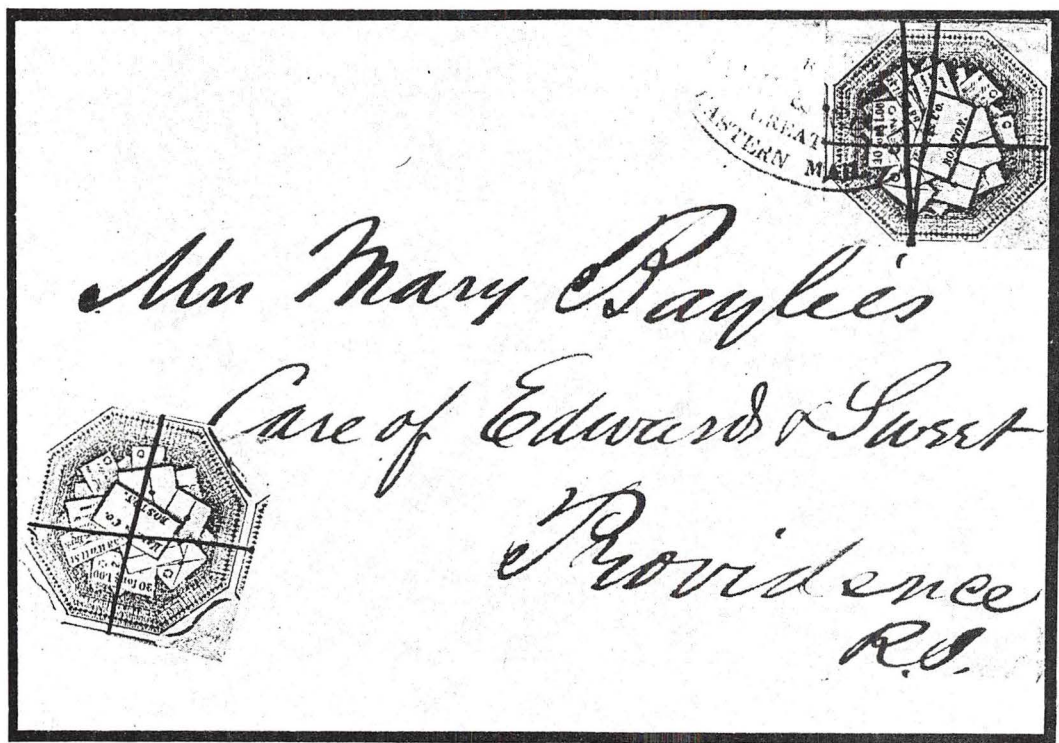 GREAT
EASTERN MAIL
BOSTON.
Mrs Mary Baylies
Care of Edwards & Sweet
Providence
R.I.
20 for $1.00